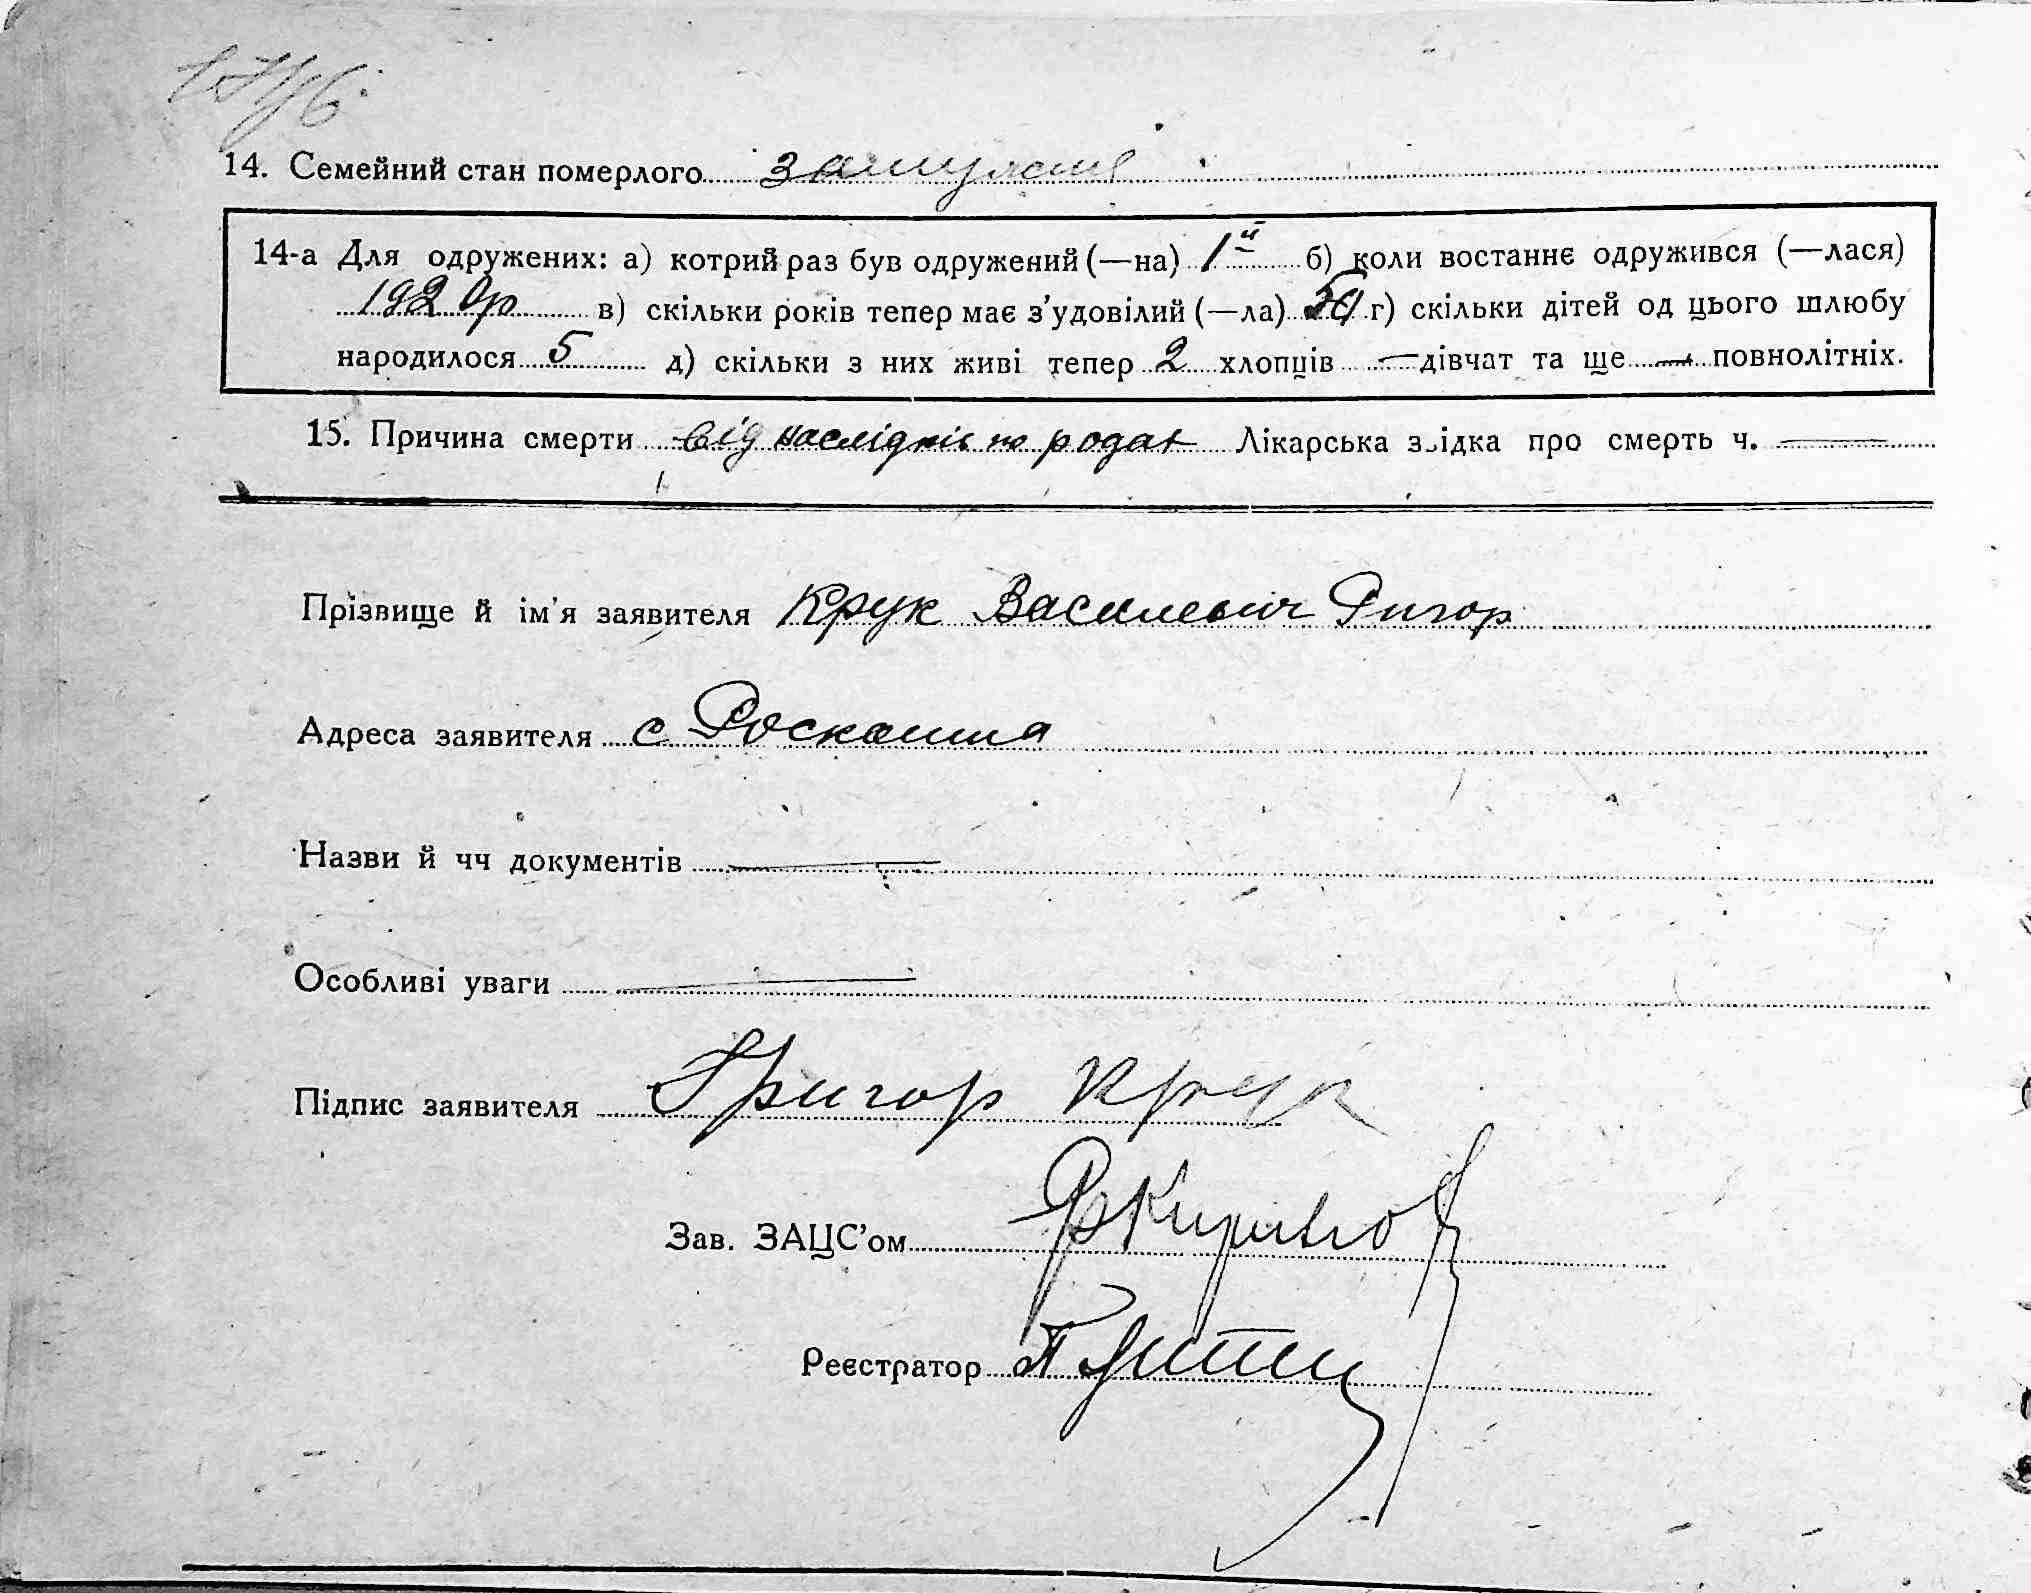 14. Семейний стан померлого замужня
14-а Для одружених: а) котрий раз був одружений (—на) 1й б) коли востаннє одружився (—лася)
192 0р в) скільки років тепер має з'удовілий (—ла) г) скільки дітей од цього шлюбу
народилося 5 д) скільки з них живі тепер 2 хлопців — дівчат та ще — повнолітніх.
15. Причина смерти від наслідків по родах Лікарська звідка про смерть ч. —
Прізвище й ім'я заявителя Крук Василевич Григор
Адреса заявителя с Роскошна
Назви й чч документів —
Особливі уваги —
Підпис заявителя Григор Крук
Зав. ЗАЦС'ом
Реєстратор